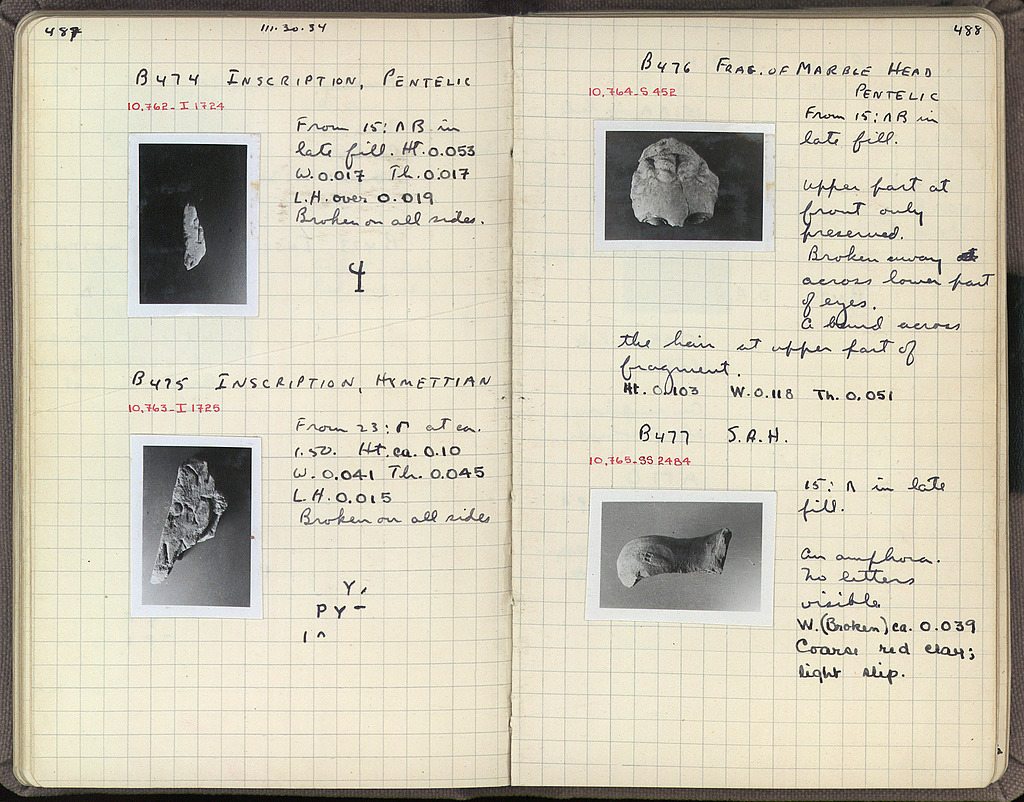 487
III·30·34
B474 INSCRIPTION, PENTELIC
10,762-I 1724
From 15:ΛB in
late fill. Ht. 0.053
W. 0.017 Th. 0.017
L.H. over 0.019
Broken on all sides.
B475 INSCRIPTION, HYMETTIAN
10,763-I 1725
From 23:Π at ca.
1.50. Ht. ca. 0.10
W. 0.041 Th. 0.045
L.H. 0.015
Broken on all sides
Y,
PY-
488
B476 FRAG. OF MARBLE HEAD
PENTELIC
10,764-S 452
From 15:ΛB in
late fill.
Upper part at
front only
preserved.
Broken away
across lower part
of eyes.
A band across
the hair at upper part of
fragment.
Ht. 0.103 W. 0.118 Th. 0.051
B477 S.A.H.
10,765-SS 2484
15:Λ in late
fill.
An amphora.
No letters
visible
W. (Broken) ca. 0.039
Coarse red clay;
light slip.